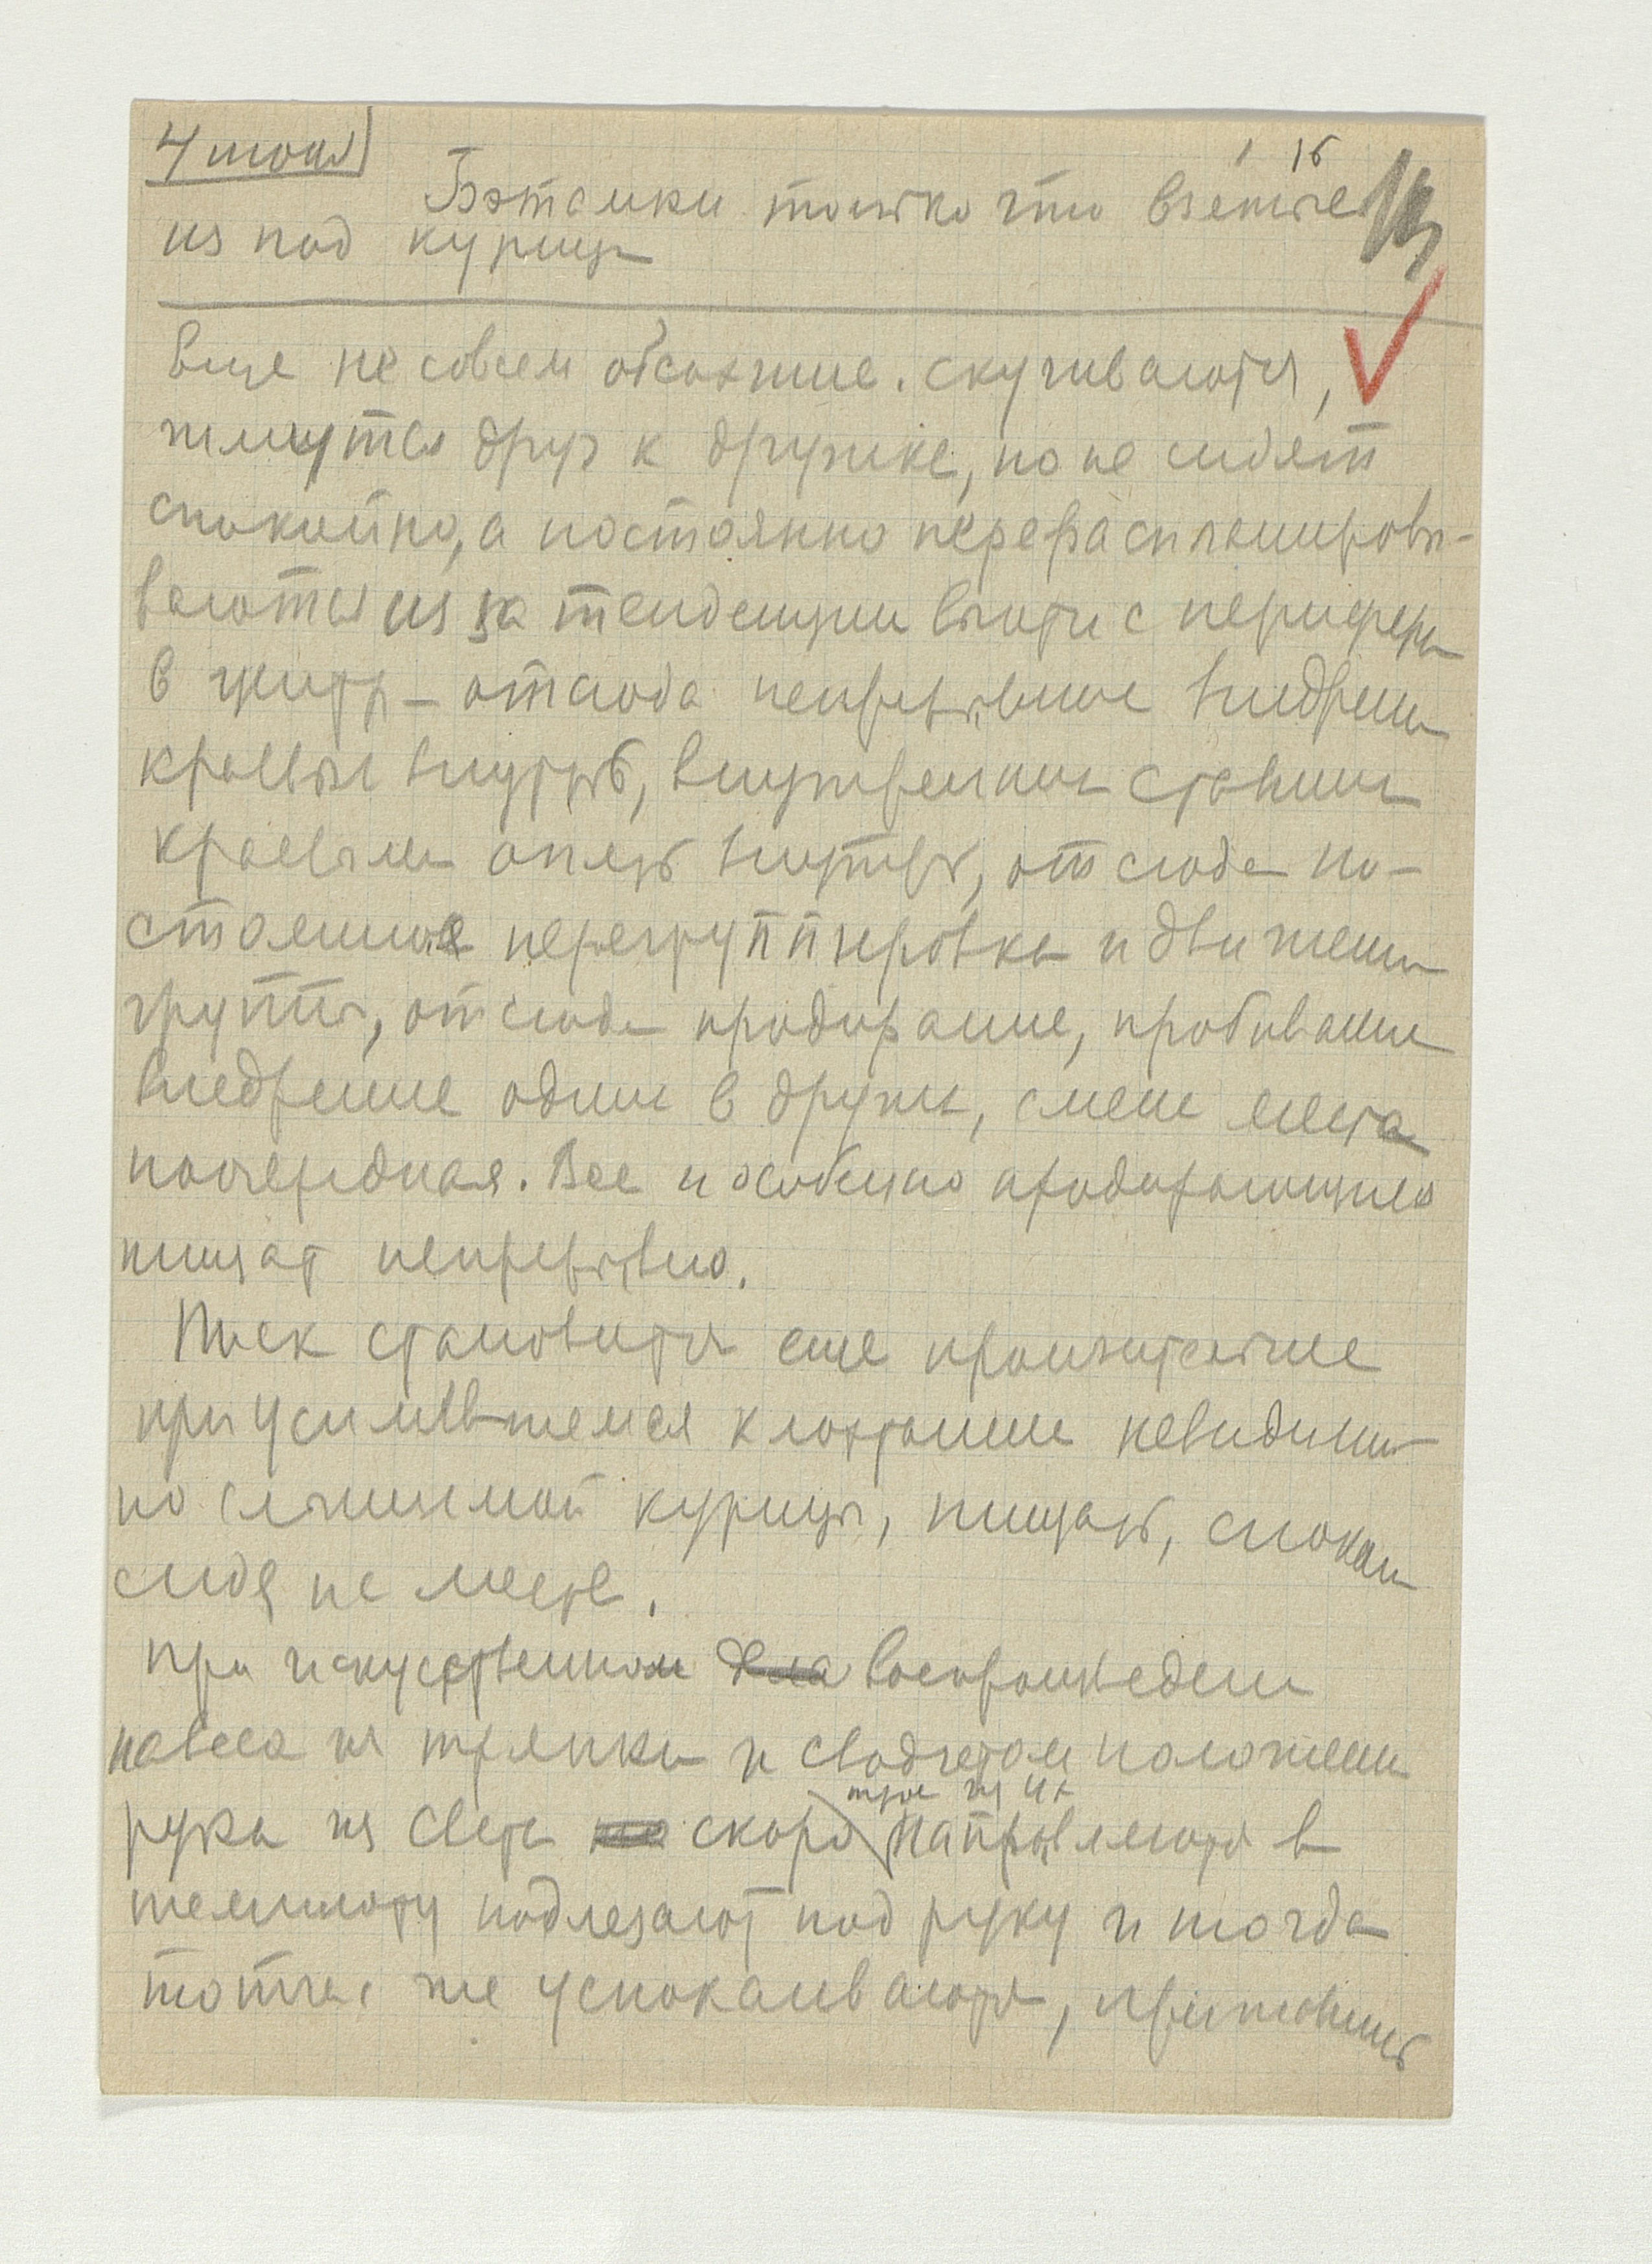 4 июня
1 15
Бэтамки только что взятые
из под курицы
Еще не совсем обсохшие. скучиваются,
жмутся друг к дружке, но не сидят
спокойно, а постоянно перераспланировы-
ваются из за тенденции выйти с периферии
в центр – отсюда непрерывные внедрения
краевых внутрь, внутренних ставших
краевыми опять внутрь, отсюда по-
стоянная перегруппировка и движение
группы, отсюда продирание, пробивание
внедрение одних в других, смена места
поочередная. Все и особенно продирающиеся
пищат непрерывно.
Писк становится еще пронзительнее
при усилившемся клохтание невидимо
но слышимой курицы, пищать, спокойно
сидя на месте.
При искусственном воспроизведении
навеса из тряпки и сводчатом положении
руки на свету скоро трое из их направляются в
темноту подлезают под руку и тогда
тотчас же успокаиваются, прижавшись